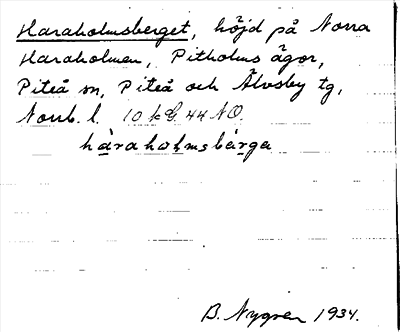 Haraholmsberget, höjd på Norra
Haraholmen, Pitholms ägor,
Piteå sn, Piteå och Älvsby tg,
Norrb. l. 10 k G. 44 NO.
hàraholmsbärga
B. Nygren 1934.